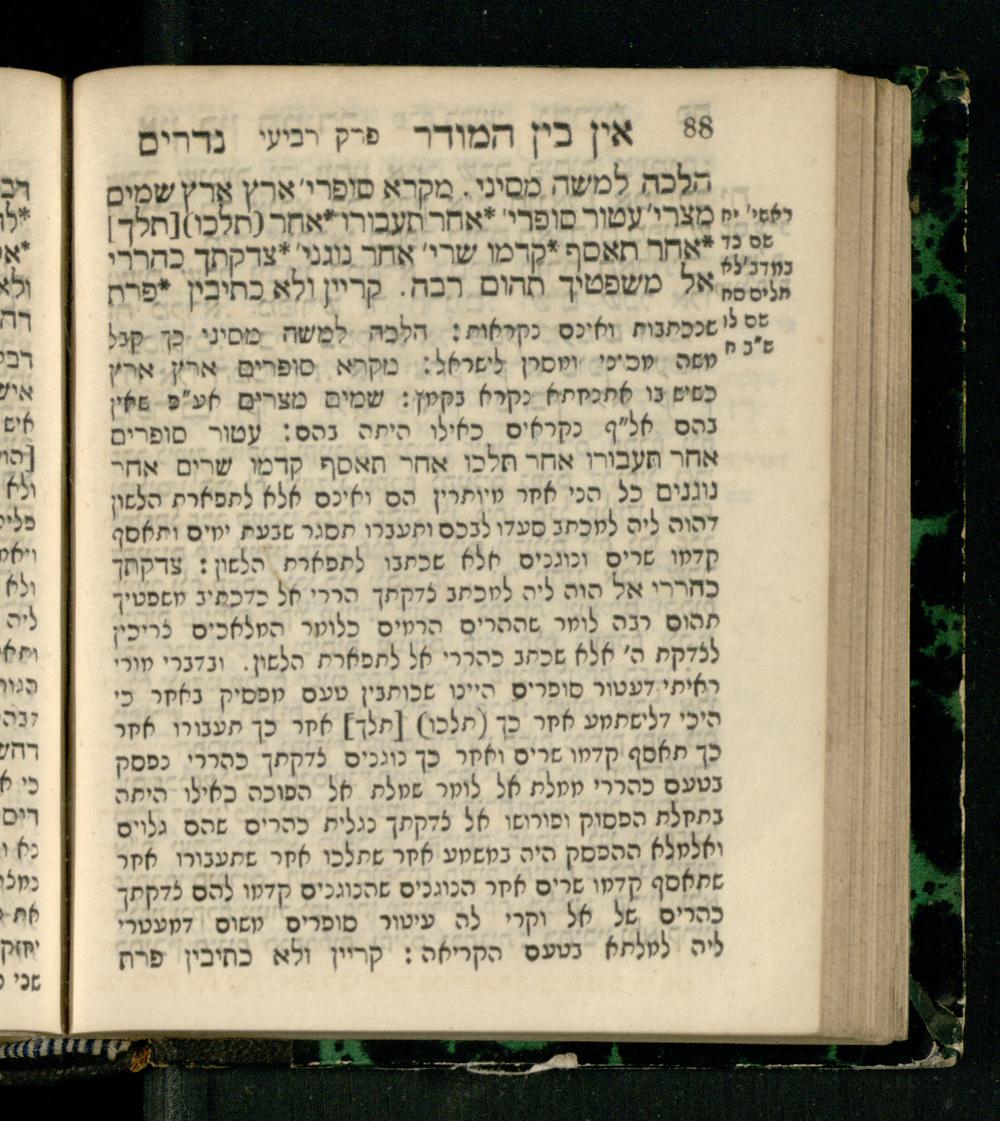 88 אין בין המודר פרק רביעי נדרים
הלכה למשה מסיני. מקרא סופרי׳ ארץ ארץ שמים
מצרי׳ עטור סופרי׳ *אחר תעבורו *אחר (תלכו) [תלך]
*אחר תאסף *קדמו שרי׳ אחר נוגני׳ *צדקתך כהררי
אל משפטיך תהום רבה. קריין ולא כתיבין *פרת
שנכתבות ואינם נקראות: הלכה למשה מסיני כך קבל
משה מסיני ומסרן לישראל: מקרא סופרים ארץ ארץ
כשיש בו אתנחתא נקרא בקמץ: שמים מצרים אע״פ שאין
בהם אל״ף נקראים כאילו היתה בהם: עטור סופרים
אחר תעבורו אחר תלכו אחר תאסף קדמו שרים אחר
נוגנים כל הני אחר מיותרין הם ואינם אלא לתפארת הלשון
דהוה ליה למכתב סעדו לבכם ותעברו תסגר שבעת ימים ותאסף
קדמו שרים ונוגנים אלא שכתבו לתפארת הלשון: צדקתך
כהררי אל הוה ליה למכתב צדקתך הררי אל כדכתיב משפטיך
תהום רבה לומר שההרים הרמים כלומר המלאכים צריכין
לצדקת ה׳ אלא שכתב כהררי אל לתפארת הלשון. ובדברי מורי
ראיתי דעטור סופרים היינו שכותבין טעם מפסיק באחר כי
היכי דלישתמע אחר כך (תלכו) [תלך] אחר כך תעבורו אחר
כך תאסף קדמו שרים ואחר כך נוגנים צדקתך כהררי נפסק
בטעם כהררי ממלת אל לומר שמלת אל הפוכה כאילו היתה
בתחלת הפסוק ופירושו אל צדקתך נגלית כהרים שהם גלוים
ואלמלא ההפסק היה במשמע אחר שתלכו אחר שתעבורו אחר
שתאסף קדמו שרים אחר הנוגנים שהנוגנים קדמו להם צדקתך
כהרים של אל וקרי לה עיטור סופרים משום דמעטרי
ליה למלתא בטעם הקריאה: קריין ולא כתיבין פרת
ראשי׳ יח
שם כד
במדב׳ לא
תלים סח
שם לו
ש״ב ח